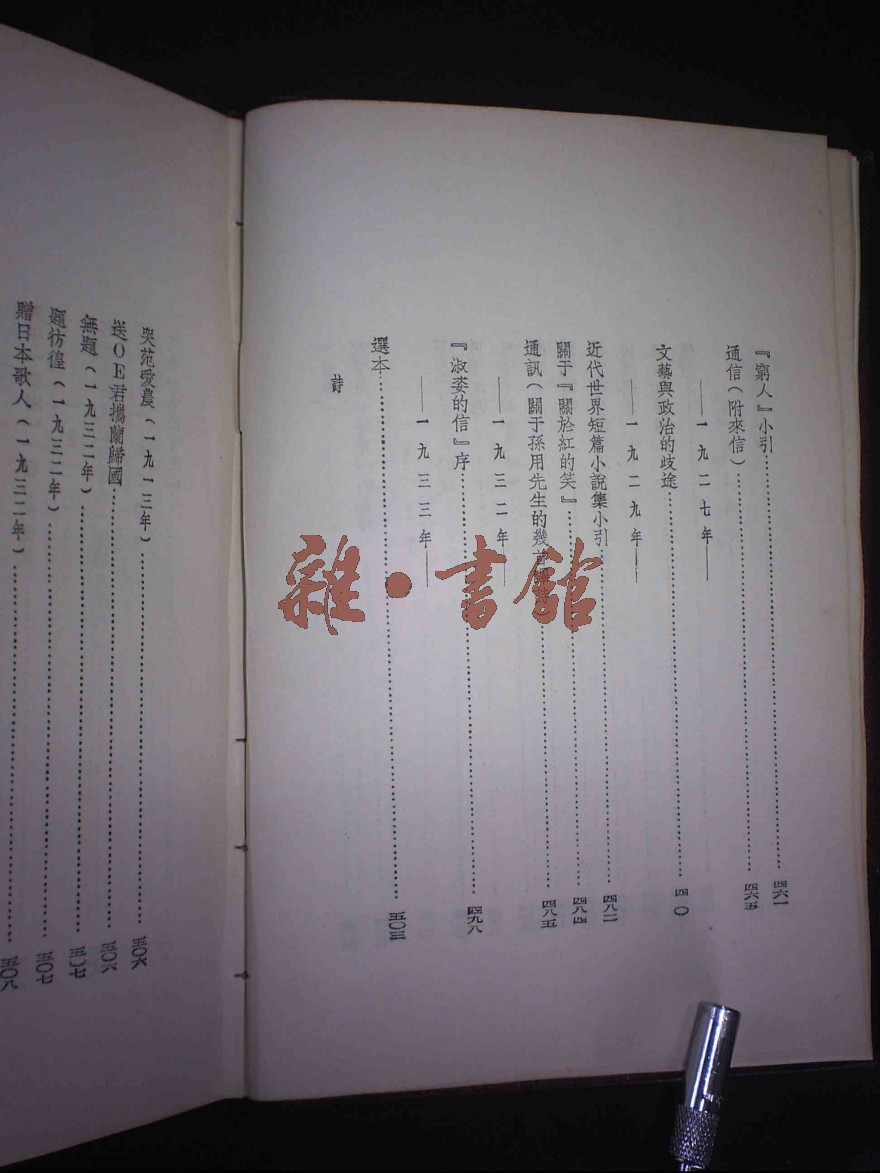 『窮人』小引 四六一
通信(附來信) 四六五
——一九二七年——
文藝與政治的歧途 四〇
——一九二九年——
近代世界短篇小說集小引 四八二
關于『關於紅的笑』 四八四
通訊(關于孫用先生的幾首 四八五
——一九三二年——
『淑姿的信』序 四九八
——一九三三年——
選本 五〇三
詩
哭范愛農(一九一三年) 五〇六
送OE君攜蘭歸國 五〇六
無題(一九三二年) 五〇七
題彷徨(一九三二年) 五〇七
贈日本歌人(一九三二年) 五〇八
雜·書館